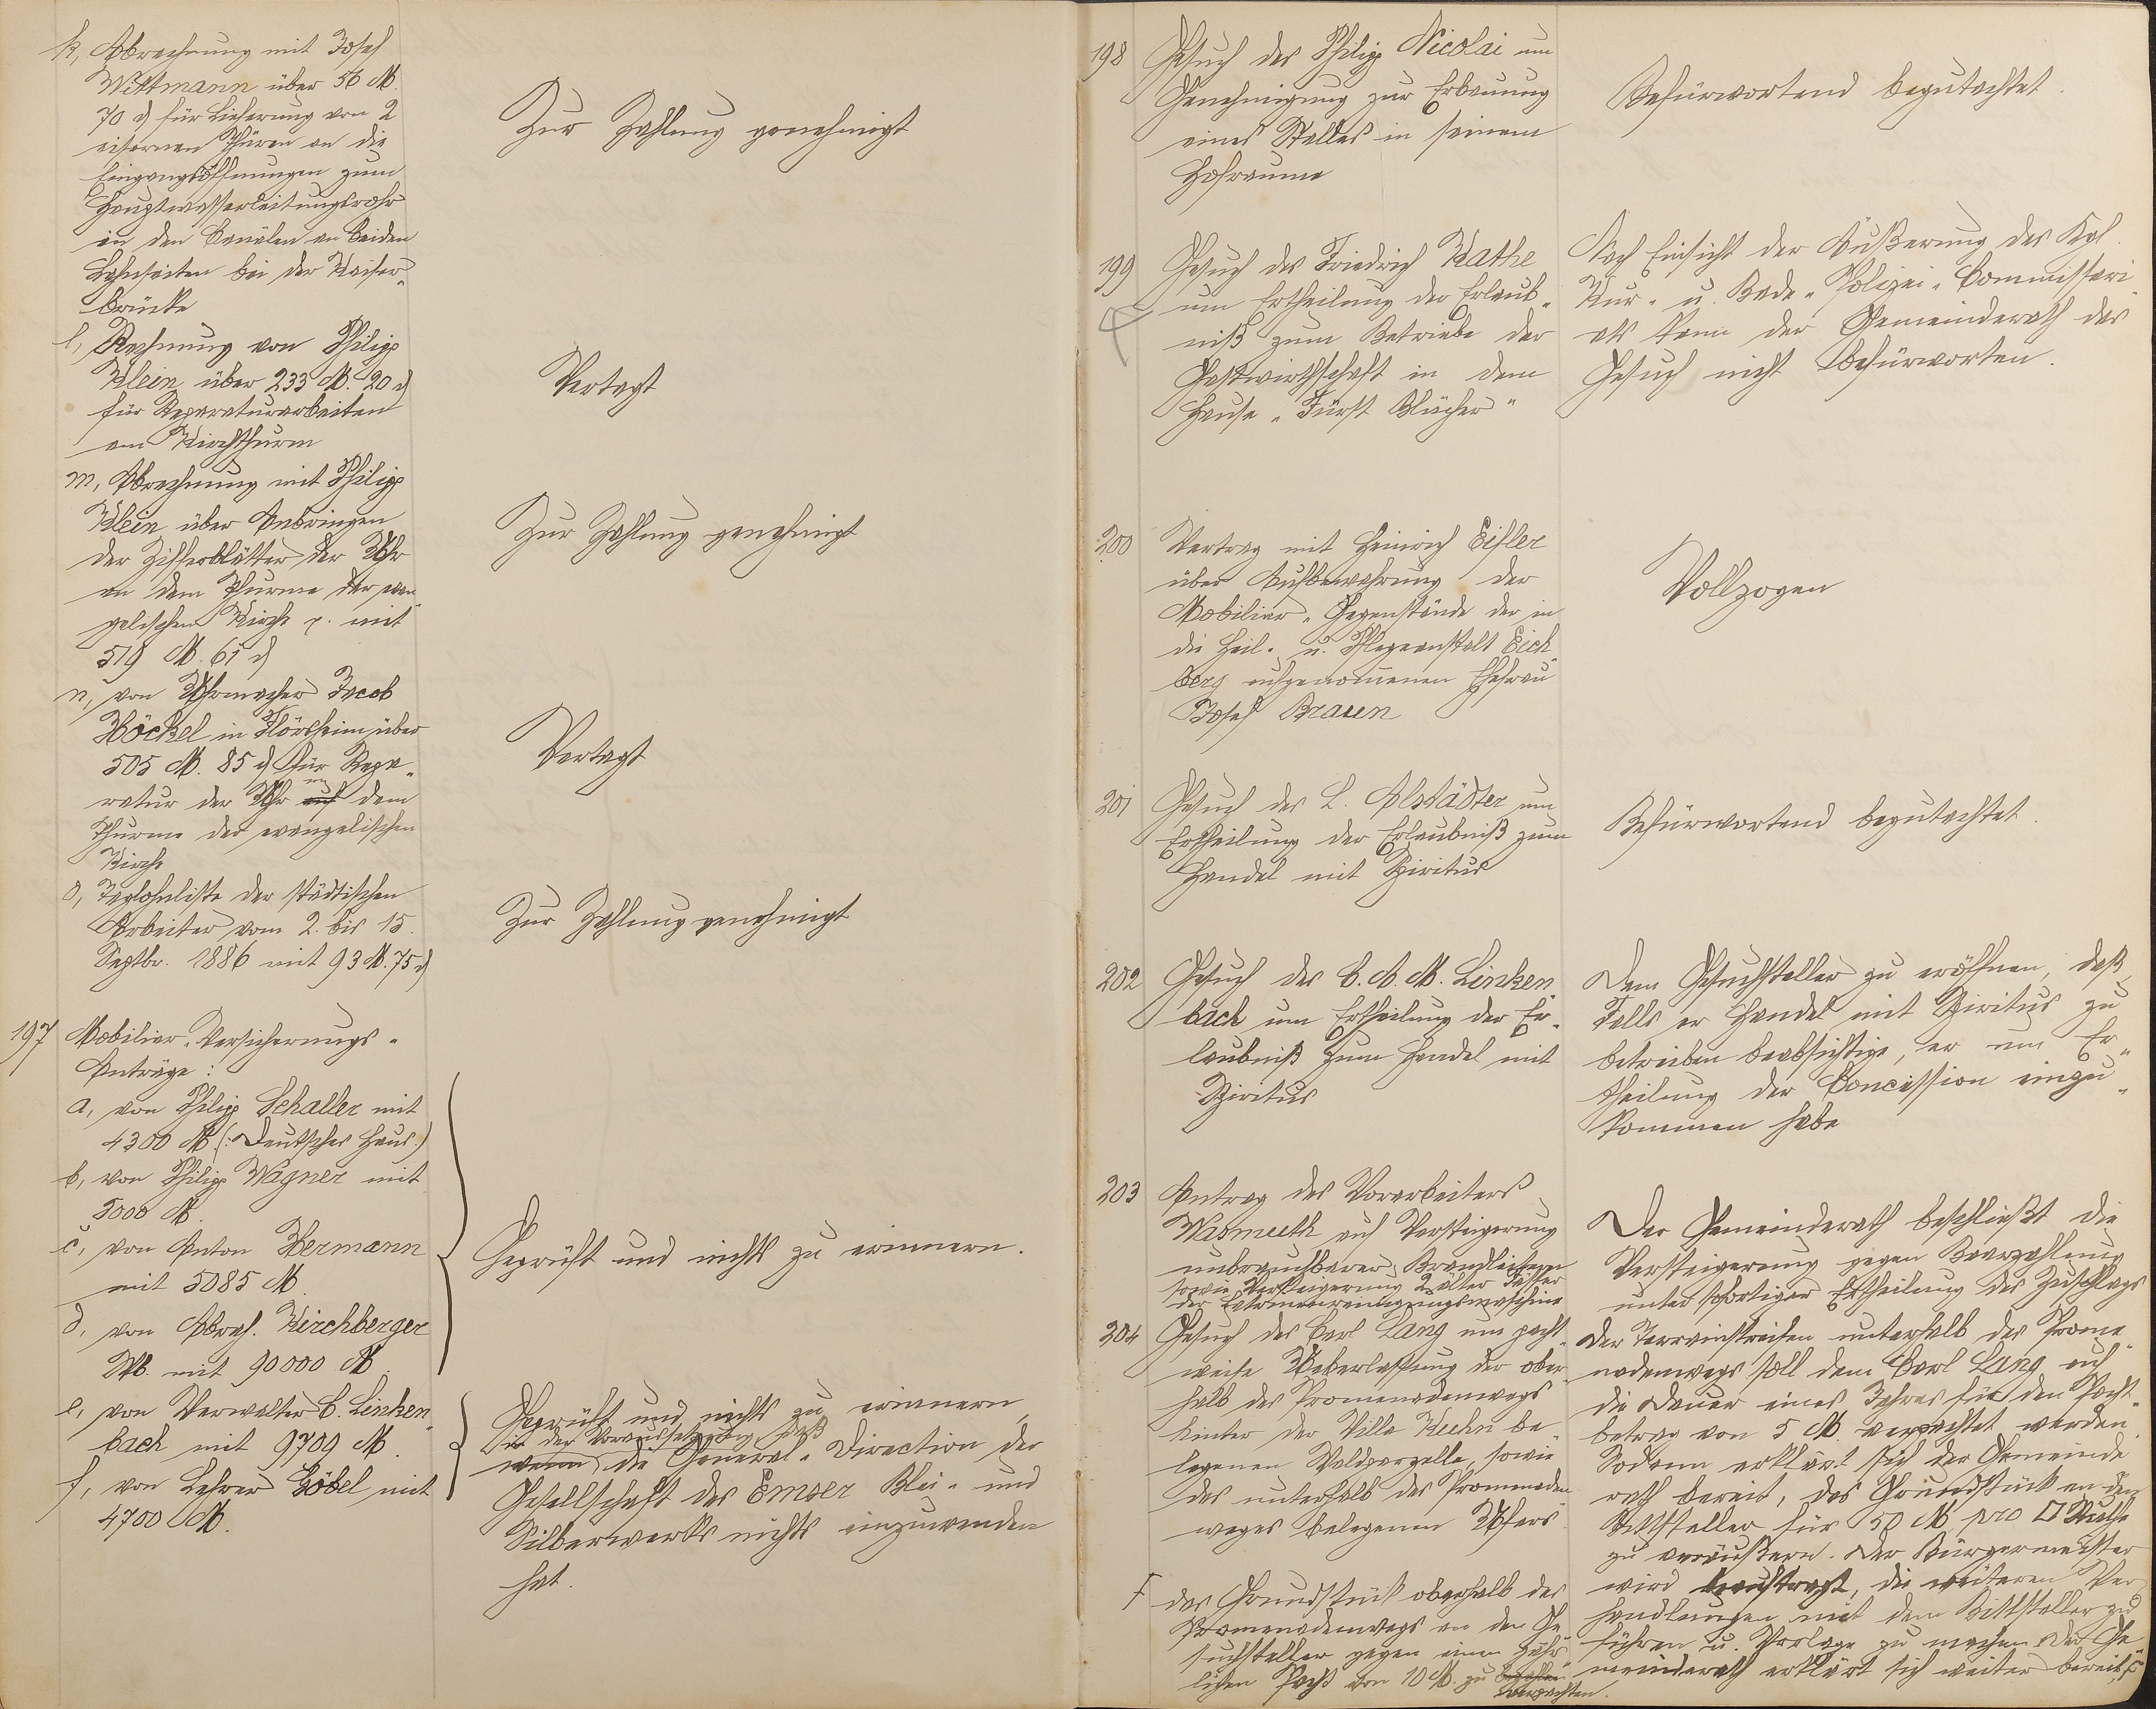 k, Abrechnung mit Josef
Wittmann über 56 M.
70 ₰ für Lieferung von 2
eisernen Thüren an die
Eingangsöffnungen zum
Hauptwasserleitungsrohr
in den Kanälen an beiden
Lahnseiten bei der Kaiser-
brücke
Zur Zahlung genehmigt
l, Rechnung von Philipp
Klein über 233 M. 20 ₰
für Reparaturarbeiten
am Kirchthurm
Vertagt
m, Abrechnung mit Philipp
Klein über Anbringen
der Zifferblätter der Uhr
an dem Thurme der evan-
gelischen Kirche p. mit
519 M. 61 ₰
Zur Zahlung genehmigt
n, von Uhrmacher Jacob
Höckel in Flörsheim über
505 M. 85 ₰ für Repa-
ratur der Uhr auf an dem
Thurme der evangelischen
Kirche
Vertagt
o, Taglohnliste der städtischen
Arbeiter vom 2. bis 15.
Septbr. 1886 mit 93 M. 75 ₰
Zur Zahlung genehmigt
197 Mobiliar-Versicherungs-
Anträge:
a, von Philipp Schaller mit
4300 M (: Deutsches Haus:)
b, von Philipp Wagner mit
5000 M.
c, von Anton Hermann
mit 5085 M.
d, von Abrah. Kirchberger
Wb. mit 90000 M.
Geprüft und nichts zu erinnern.
e, von Verwalter C. Linken-
bach mit 9709 M.
f, von Lehrer Göbel mit
4700 M.
Geprüft und nichts zu erinnern,
in der Voraussetzung, daß
wenn die General-Direction der
Gesellschaft des Emser Blei- und
Silberwerks nichts einzuwenden
hat.
198 Gesuch des Philipp Nicolai um
Genehmigung zur Erbauung
eines Stalles in seinem
Hofraume
Befürwortend begutachtet.
199 Gesuch des Friedrich Kathe
um Ertheilung der Erlaub-
niß zum Betriebe der
Gastwirthschaft in dem
Hause "Fürst Blücher"
Nach Einsicht der Äußerung des Kgl.
Kur- u. Bade-Polizei-Commissari-
ats kann der Gemeinderath das
Gesuch nicht befürworten.
200 Vertrag mit Heinrich Eisler
über Aufbewahrung der
Mobiliar-Gegenstände der in
die Heil- u. Pflegeanstalt Eich-
berg aufgenommenen Ehefrau
Josef Braun
Vollzogen
201 Gesuch des L. Alstädter um
Ertheilung der Erlaubniß zum
Handel mit Spiritus
Befürwortend begutachtet.
202 Gesuch des C. A. M. Linken-
bach um Ertheilung der Er-
laubniß zum Handel mit
Spiritus
Dem Gesuchsteller zu eröffnen, daß
Falls er Handel mit Spiritus zu
betreiben beabsichtige, er um Er-
theilung der Concession einzu-
kommen habe
203 Antrag des Vorarbeiters
Wasmuth auf Versteigerung
unbrauchbarer Brandleitern
sowie Versteigerung 2 alter Fässer
der Latrinenreinigungsmaschine
Der Gemeinderath beschließt die
Versteigerung gegen Baarzahlung
unter sofortiger Ertheilung des Zuschlags
204 Gesuch des Carl Lang um pacht-
weise Ueberlassung der ober-
halb des Promenadenwegs
hinter der Villa Kuhn be-
legenen Waldparzelle, sowie
des unterhalb des Promenaden-
weges belegenen Ufers
Der Terrainstreifen unterhalb des Prome-
nadenwegs soll dem Carl Lang auf
die Dauer eines Jahres für den Pacht-
betrag von 5 M. verpachtet werden.
Sodann erklärt sich der Gemeinde-
rath bereit, das Grundstück an den
Bittsteller für 50 M pro □ Ruthe
zu veräußern. Der Bürgermeister
wird beauftragt, die weiteren Ver-
handlungen mit dem Bittsteller zu
führen u. Vorlage zu machen. Der Ge-
meinderath erklärt sich weiter bereit, F
F das Grundstück oberhalb des
Promenadenwegs an den Ge-
suchsteller gegen einen jähr-
lichen Pacht von 10 M. zu
verpachten.